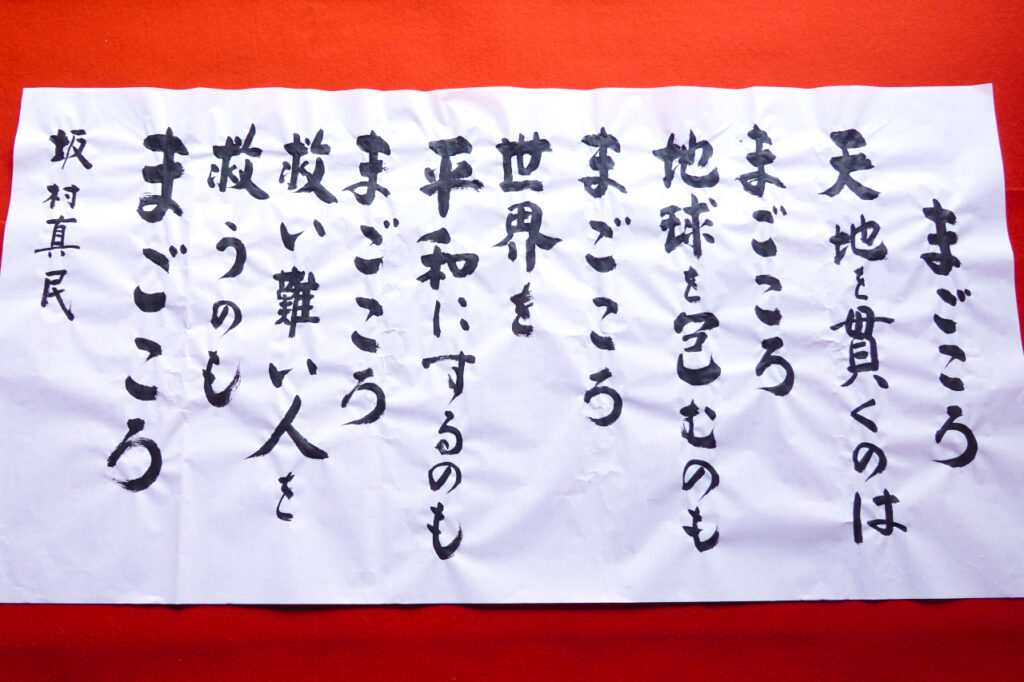 まごころ
天地を貫くのは
まごころ
地球を包むのも
まごころ
世界を
平和にするのも
まごころ
救い難い人を
救うのも
まごころ
坂村真民